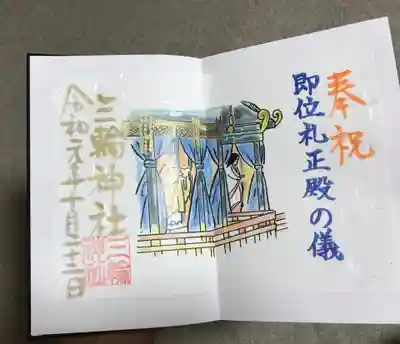 奉祝
即位礼正殿の儀
三輪神社
令和元年十月二十二日